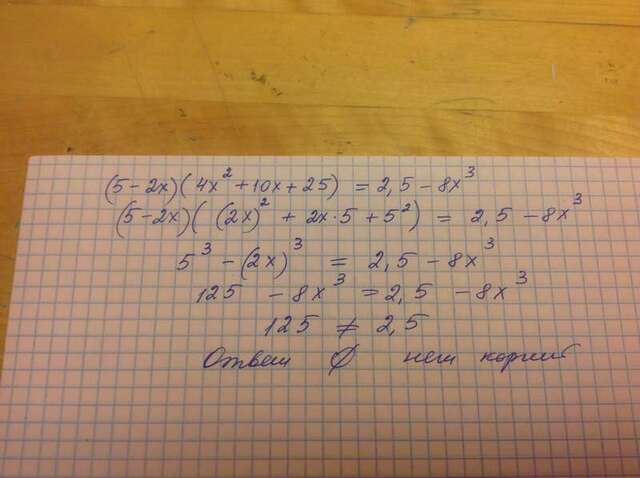 (5-2x)(4x²+10x+25) = 2,5-8x³
(5-2x)((2x)² + 2x·5+5²) = 2,5-8x³
5³-(2x)³ = 2,5-8x³
125 -8x³ =2,5 -8x³
125 ≠ 2,5
Ответ ∅ нет корней